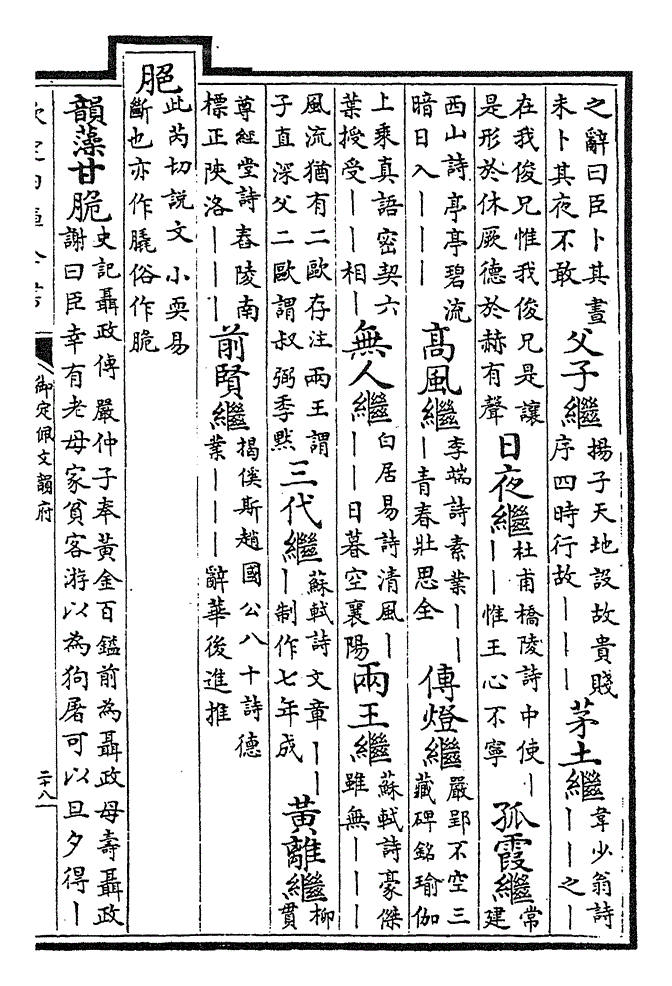 之辭曰臣卜其晝未卜其夜不敢 父子繼 揚子天地設故貴賤序四時行故｜｜｜ 茅土繼 韋少翁詩｜｜之｜
在我俊兄惟我俊兄是讓是形於休厥德於赫有聲 日夜繼 杜甫橋陵詩中使｜｜｜惟王心不寧 孤霞繼 常建
西山詩亭亭碧流暗日入｜｜｜ 高風繼 李端詩素業｜｜｜青春壯思全 傳燈繼 嚴郢不空三藏碑銘瑜伽
上乘真語密契六葉授受｜｜相｜ 無人繼 白居易詩清風｜｜｜日暮空襄陽 兩王繼 蘇軾詩豪傑雖無｜｜｜
風流猶有二歐存注兩王謂子直深父二歐謂叔弼季默 三代繼 蘇軾詩文章｜｜｜制作七年成 黃離繼 柳貫
尊經堂詩舂陵南標正陝洛｜｜｜ 前賢繼 揭傒斯趙國公八十詩德業｜｜｜辭華後進推
脃 此芮切說文小耎易斷也亦作膬俗作脆
韻藻甘脆 史記聶政傳嚴仲子奉黃金百鎰前為聶政母壽聶政謝曰臣幸有老母家貧客游以為狗屠可以旦夕得｜
欽定四庫全書
御定佩文韻府
二十八